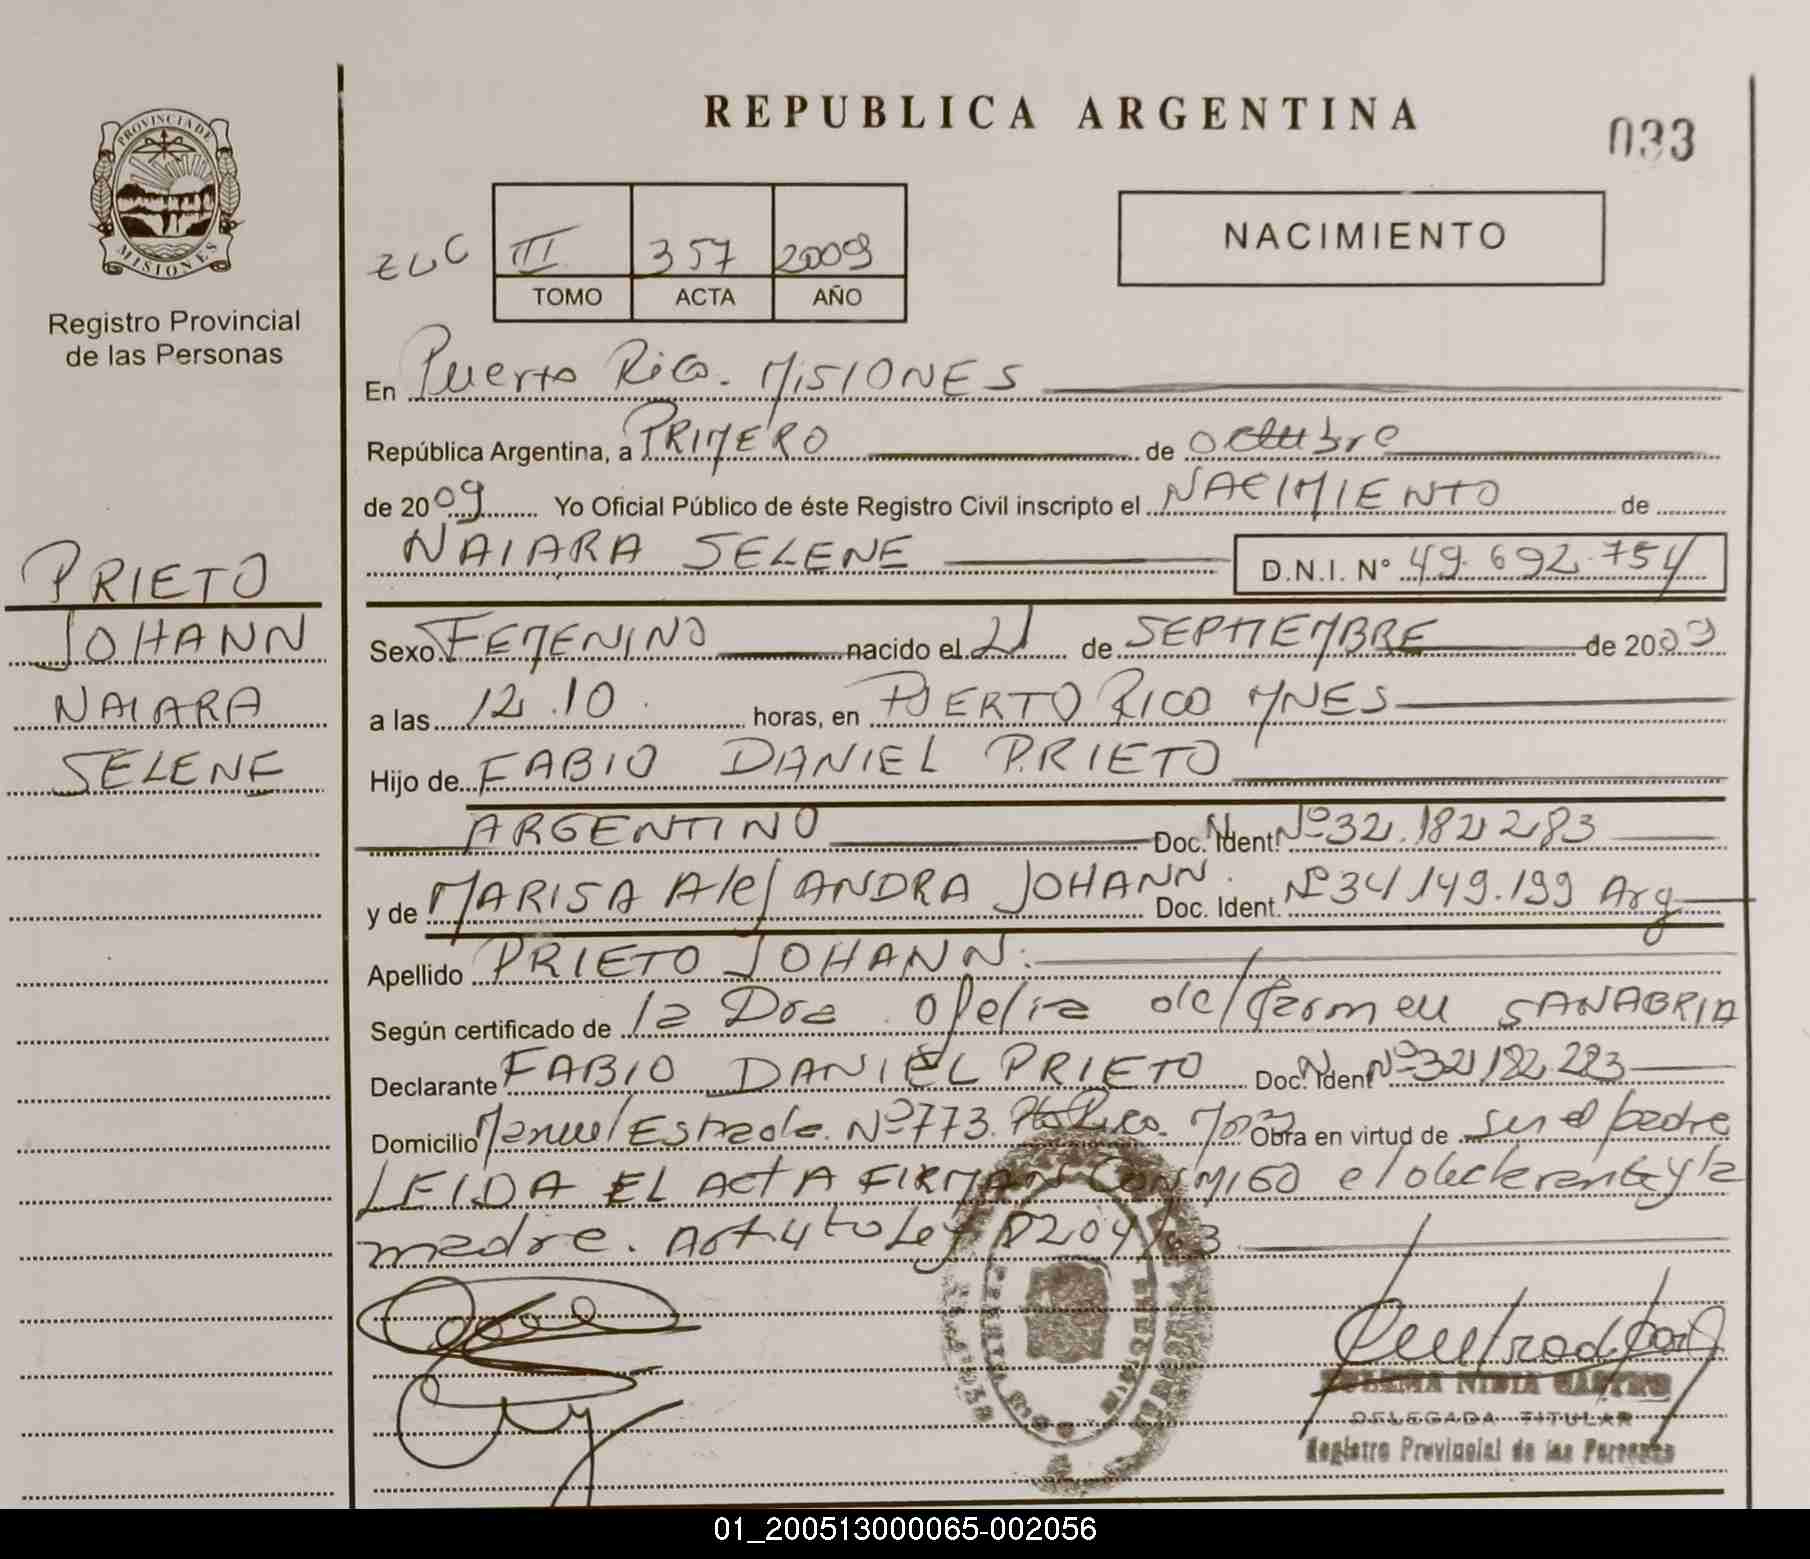 REPUBLICA ARGENTINA
033
PROVINCIA DE
MISIONES
Registro Provincial
de las Personas
III 357 2009
TOMO ACTA AÑO
NACIMIENTO
En Puerto Rico. MISIONES
República Argentina, a PRIMERO de octubre
de 2009 Yo Oficial Público de éste Registro Civil inscripto el NACIMIENTO de
NAIARA SELENE D.N.I. N° 49.692.754
PRIETO
JOHANN
NAIARA
SELENE
Sexo FEMENINO nacido el 21 de SEPTIEMBRE de 2009
a las 12.10 horas, en PUERTO RICO MNES
Hijo de FABIO DANIEL PRIETO
ARGENTINO Doc. N. Ident. Nº 32.182.283
y de MARISA AleJANDRA JOHANN. Doc. Ident. Nº 34149.199 Arg
Apellido PRIETO JOHANN.
Según certificado de la Dra. Ofelia del Carmen SANABRIA
Declarante FABIO DANIEL PRIETO Doc. N. Ident Nº 32182283
Domicilio Manuel Estrada. Nº 773. Pto Rico. Obra en virtud de ser el padre
LEIDA EL ACTA FIRMAN CONMIGO el declarante y la
madre. Art 4to Ley
NIDIA CASTRO
DELEGADA TITULAR
Registro Provincial de las Personas
01_200513000065-002056